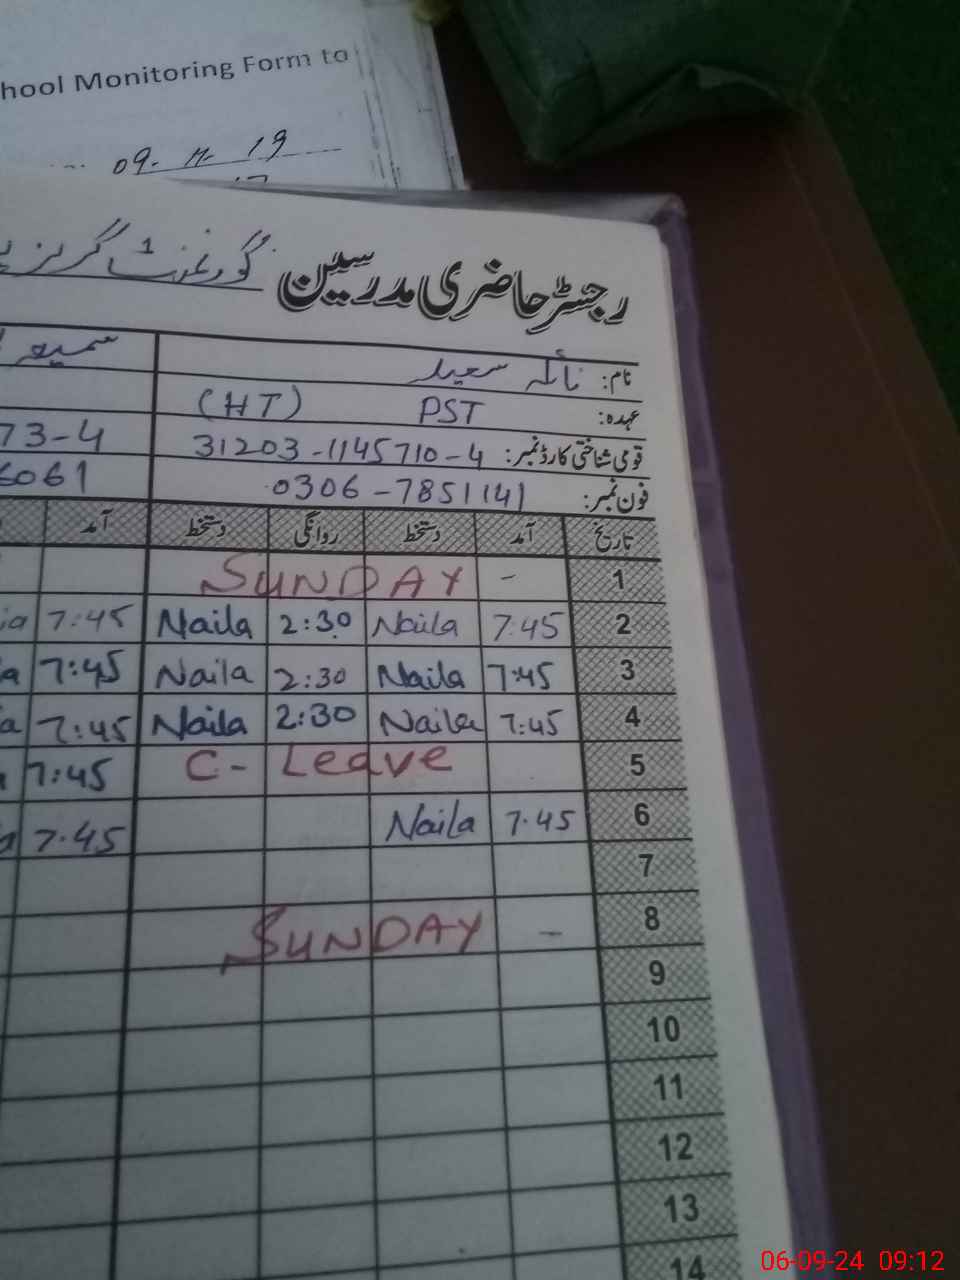 hool Monitoring Form to
09-11-19
رجسٹر حاضری مدرسین گورنمنٹ گرلز
نام: نائلہ سعید سمیعہ
عہدہ: PST (HT)
قومی شناختی کارڈ نمبر: 31203-1145710-4 73-4
فون نمبر: 0306-7851141 6061
تاریخ آمد دستخط روانگی دستخط آمد
1 - SUNDAY
2 7:45 Naila 2:30 Naila 7:45 ia
3 7:45 Naila 2:30 Naila 7:45 a
4 7:45 Naila 2:30 Naila 7:45 a
5 C- Leave 7:45
6 7.45 Naila 7.45
7
8 - SUNDAY
9
10
11
12
13
14
06-09-24 09:12